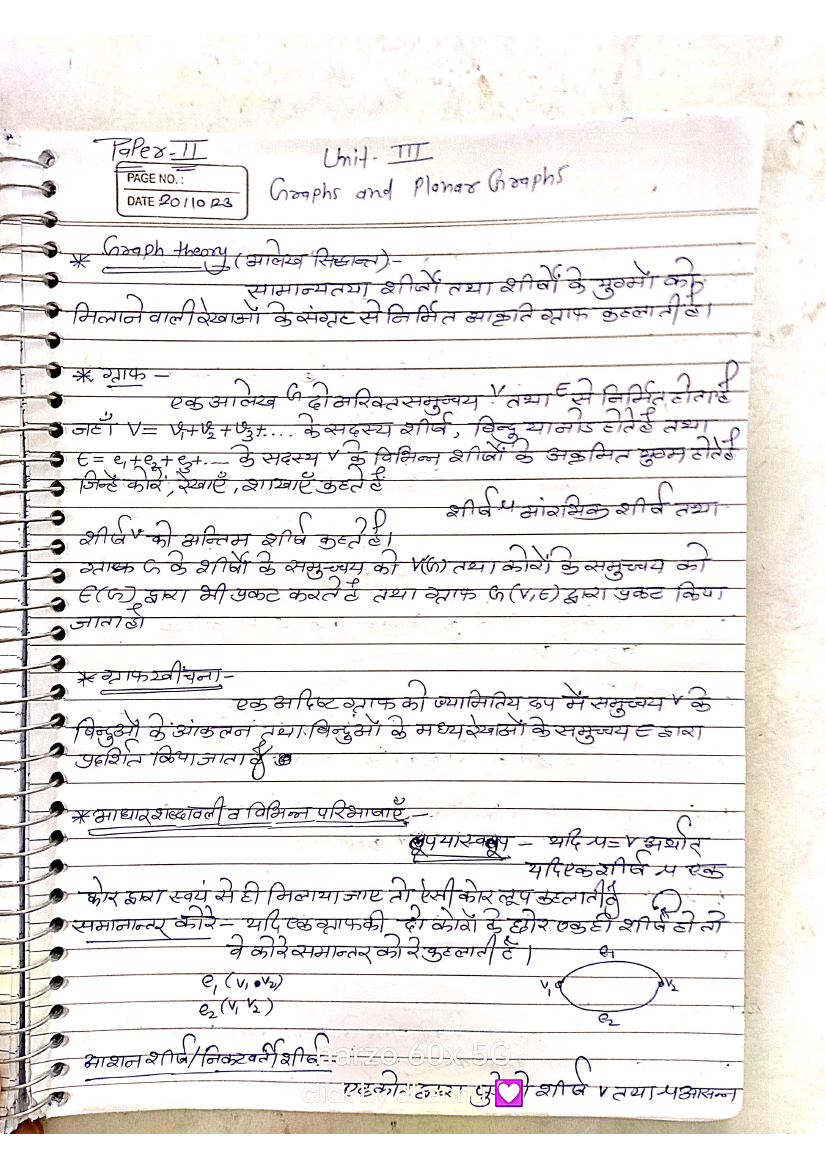 Paper-II
Unit-III
PAGE NO.:
DATE 20/10/23
Graphs and Planar Graphs
* Graph theory (आलेख सिद्धान्त)-
सामान्यतया शीर्षों तथा शीर्षों के युग्मों को
मिलाने वाली रेखाओं के संग्रह से निर्मित आकृति ग्राफ कहलाती है।
* ग्राफ -
एक आलेख G दो अरिक्त समुच्चय V तथा E से निर्मित होता है
जहाँ V= v₁+v₂+v₃+.... के सदस्य शीर्ष, बिन्दु या नोड होते हैं तथा
E= e₁+e₂+e₃+.... के सदस्य V के विभिन्न शीर्षों के अक्रमित युग्म होते हैं
जिन्हें कोरें, रेखाएँ, शाखाएँ कहते हैं
शीर्ष u प्रांरभिक शीर्ष तथा
शीर्ष v को अन्तिम शीर्ष कहते है।
ग्राफ G के शीर्षों के समुच्चय को V(G) तथा कोरों के समुच्चय को
E(G) द्वारा भी प्रकट करते हैं तथा ग्राफ G(V,E) द्वारा प्रकट किया
जाता है।
* ग्राफ खींचना-
एक अदिष्ट ग्राफ को ज्यामितिय रूप में समुच्चय V के
बिन्दुओं के आंकलन तथा बिन्दुओं के मध्य रेखाओं के समुच्चय E द्वारा
प्रदर्शित किया जाता है
* आधार शब्दावली व विभिन्न परिभाषाएँ -
लूप या स्वलूप - यदि u=v अर्थात्
यदि एक शीर्ष u एक
कोर द्वारा स्वयं से ही मिलाया जाए तो ऐसी कोर लूप कहलाती है
समानान्तर कोरे - यदि एक ग्राफ की दो कोरों के छोर एक ही शीर्ष हो तो
वे कोरे समान्तर कोरे कहलाती हैं।
e₁ (v₁, v₂)
e₂ (v₁ v₂)
e₁
v₁
v₂
e₂
आशन शीर्ष/निकटवर्ती शीर्ष-
narzo 60x 5G
click by
शीर्ष v तथा u आसन्न